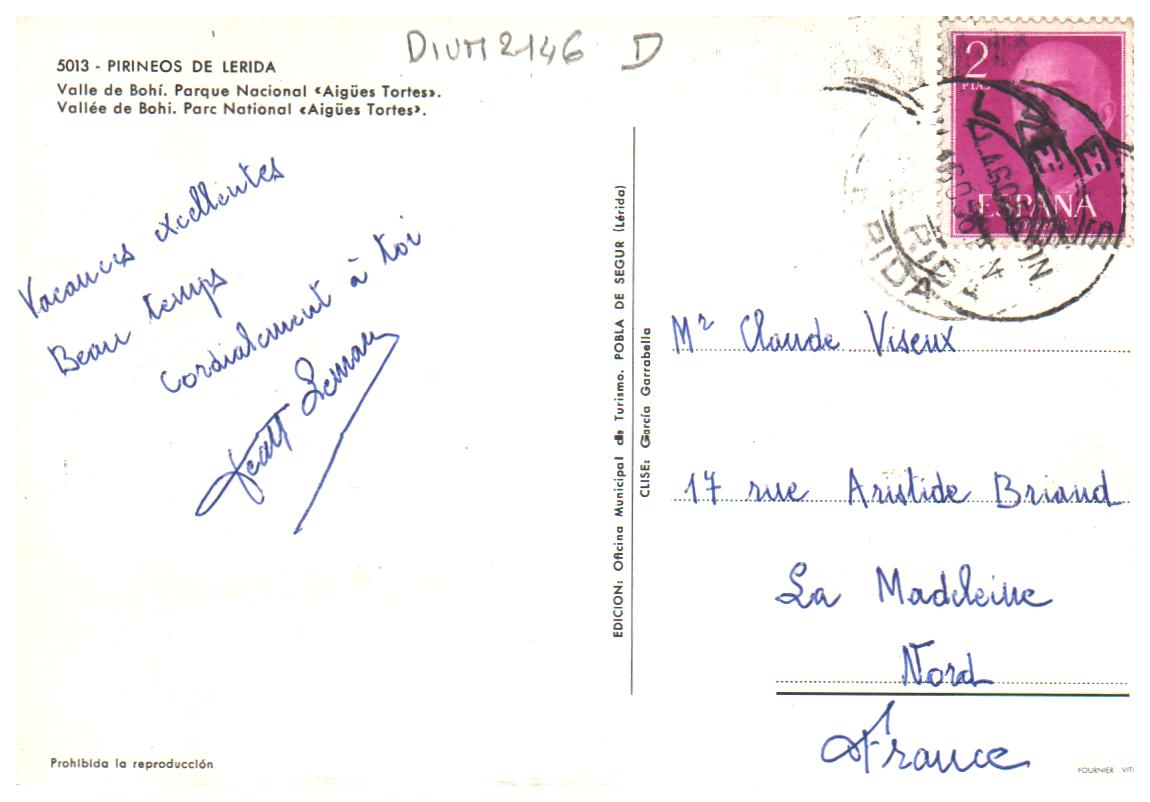 DIVM2146 D
5013 - PIRINEOS DE LERIDA
Valle de Bohí. Parque Nacional «Aigües Tortes».
Vallée de Bohi. Parc National «Aigües Tortes».
Vacances excellentes
Beau temps
Cordialement à toi
EDICION: Oficina Municipal de Turismo. POBLA DE SEGUR (Lérida)
CLISE: García Garrabella
2
PTAS
ESPAÑA
RIDA
RIDA
Mr Claude Viseux
17 rue Aristide Briand
La Madeleine
Nord
France
Prohibida la reproducción
FOURNIER VIT